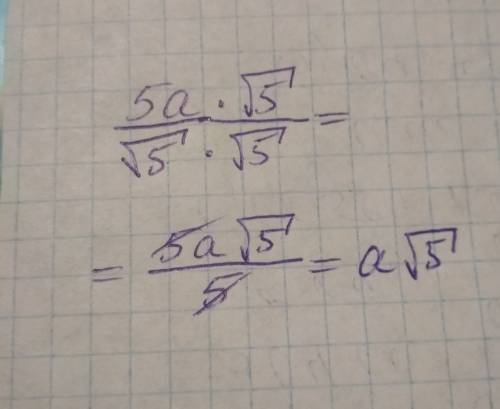 5a · √5
√5 · √5 =
= 5a√5 / 5 = a√5